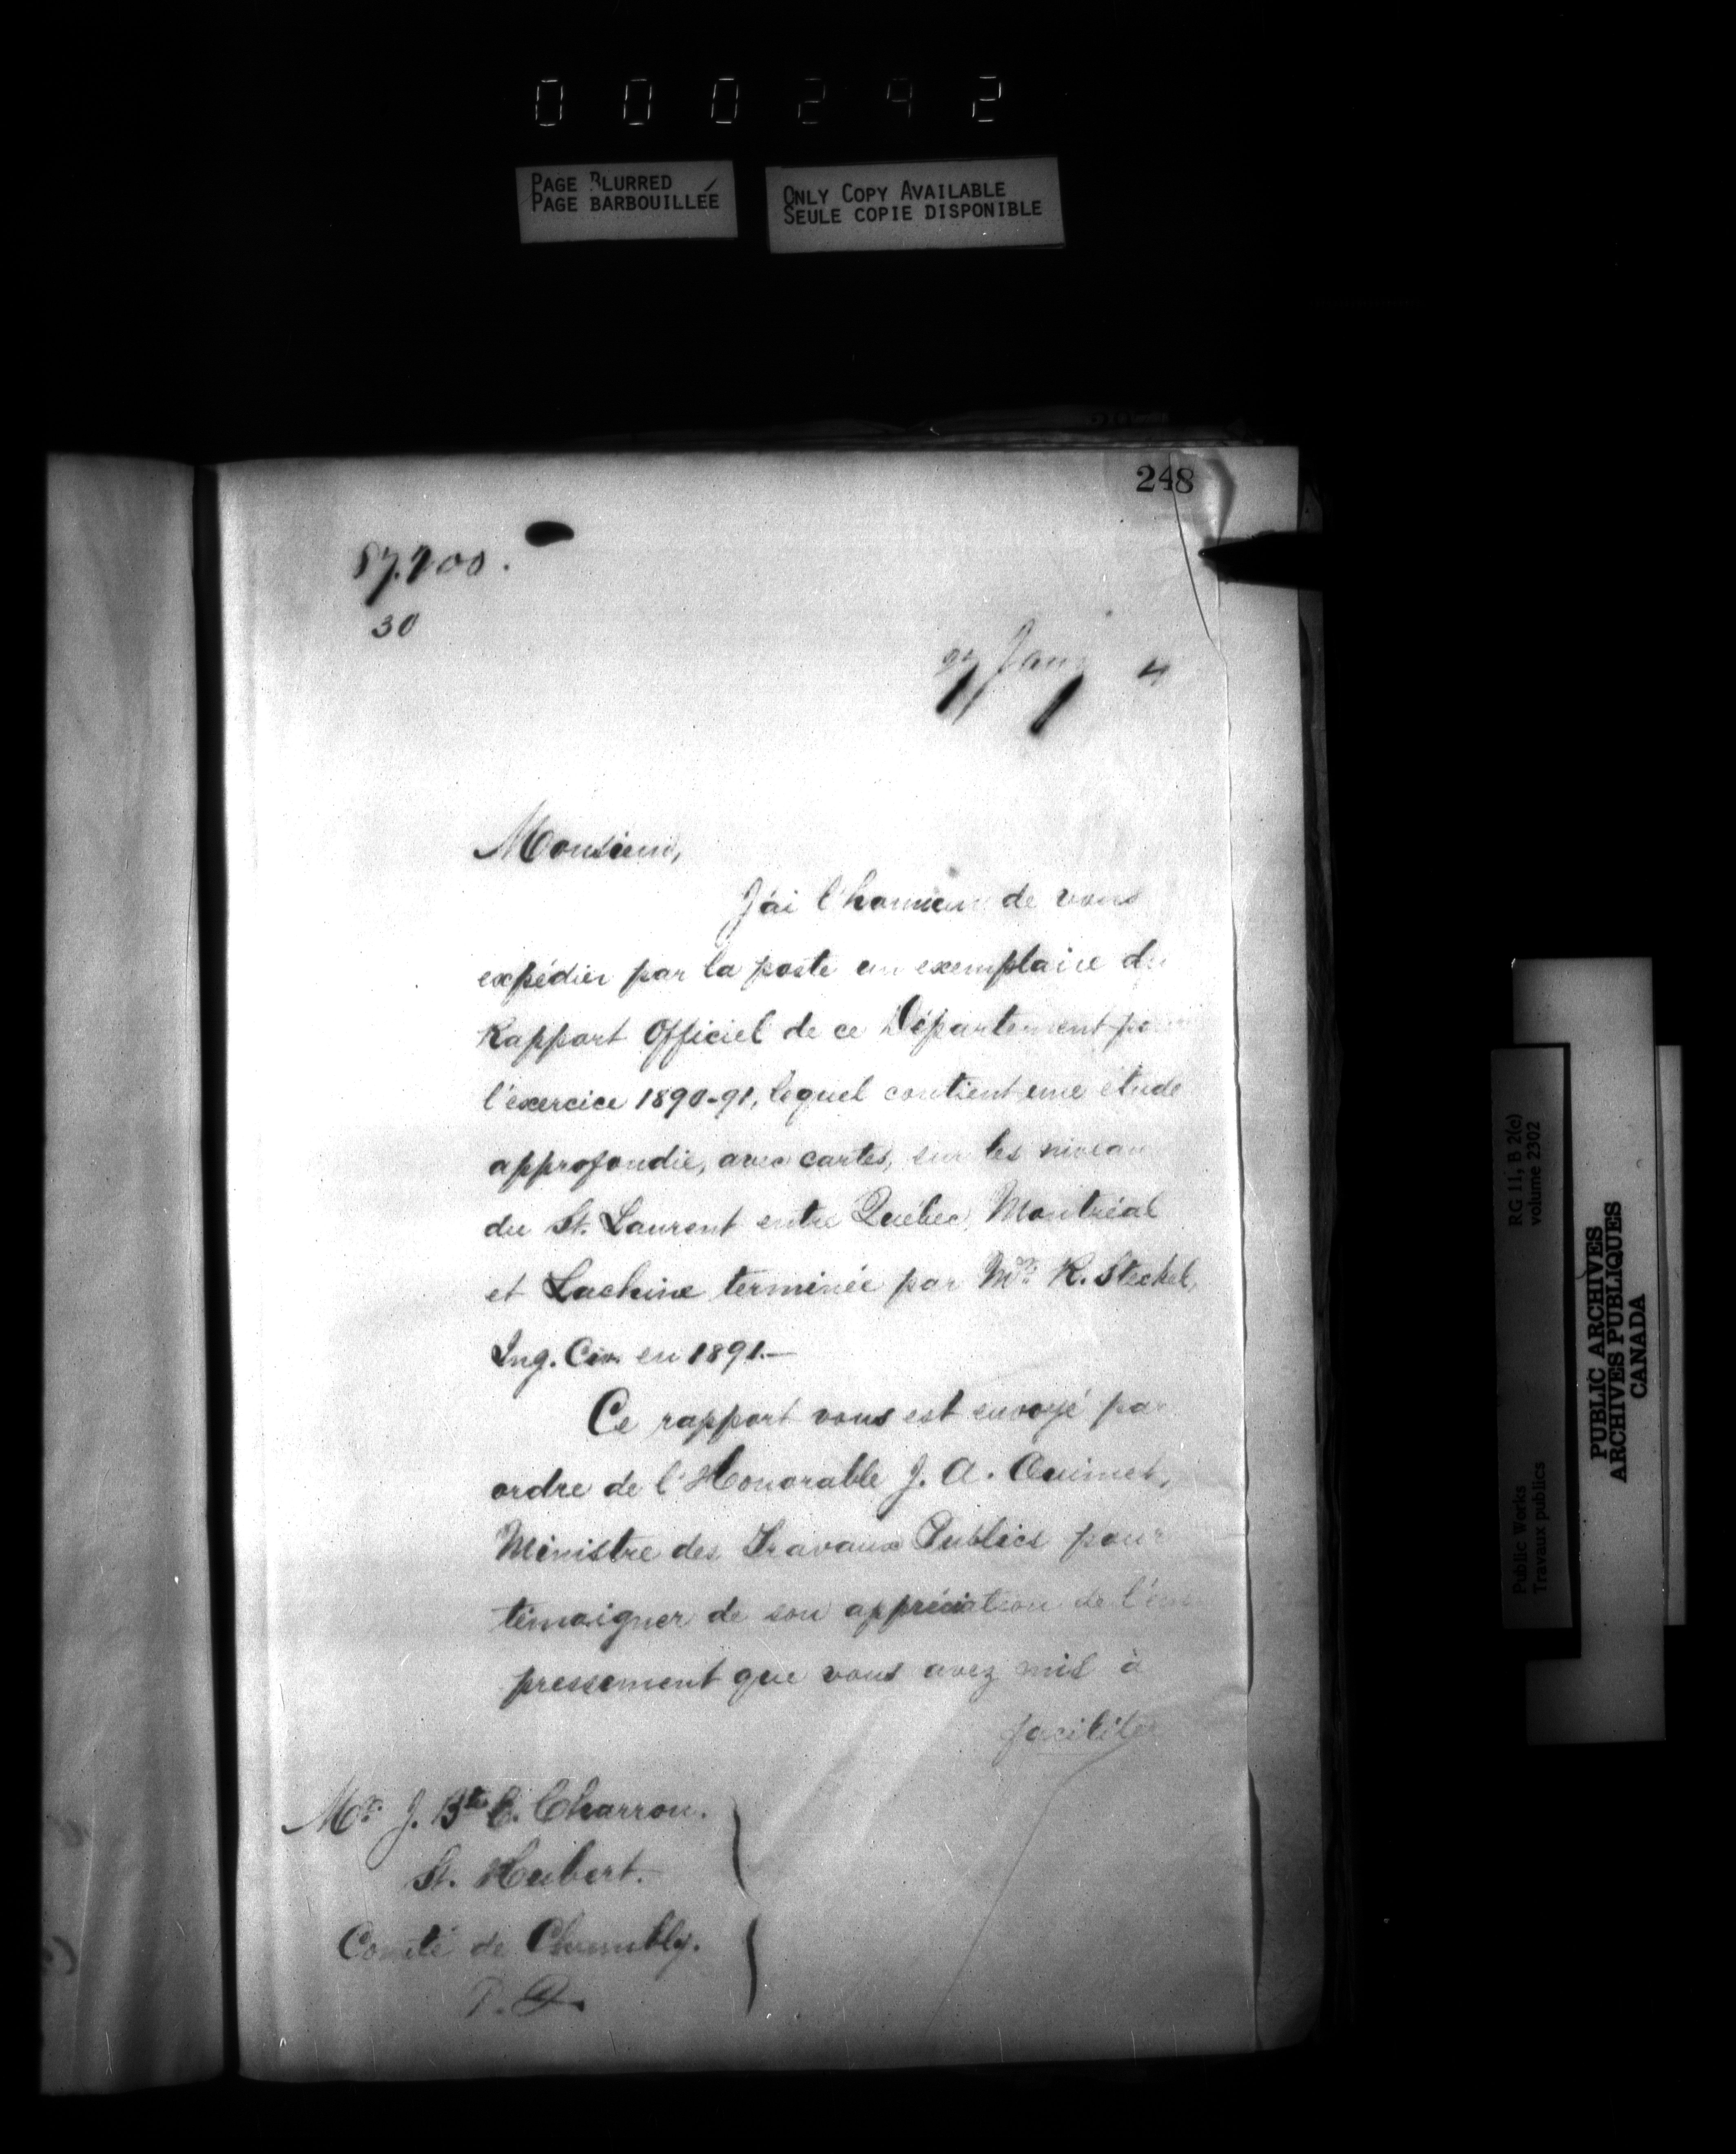 000242
PAGE BLURRED
PAGE BARBOUILLÉE
ONLY COPY AVAILABLE
SEULE COPIE DISPONIBLE
248
30
27 Jany 4
Monsieur,
J'ai l'honneur de vous
expédier par la poste un exemplaire du
Rapport Officiel de ce Département pour
l'exercice 1890-91, lequel contient une étude
approfondie, avec cartes, sur les niveau
du St. Laurent entre Québec, Montréal
et Lachine terminée par Mr. R. Steckel,
Ing. Civ. en 1891.—
Ce rapport vous est envoyé par
ordre de l'Honorable J. A. Ouimet,
Ministre des Travaux Publics pour
témoigner de son appréciation de l'em
pressement que vous avez mis à
faciliter
Mr. J. Bte. E. Charron.
St. Hubert.
Comté de Chambly.
P. Q.
RG 11, B 2(c)
volume 2302
Public Works
Travaux publics
PUBLIC ARCHIVES
ARCHIVES PUBLIQUES
CANADA